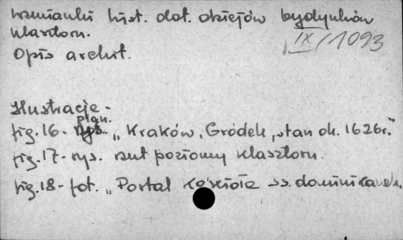 wzmianki hist. dot. dziejów budynków
klasztorn.
IX/1093
Opis archit.
Ilustracje -
fig. 16 - plan. "Kraków, Gródek, stan ok. 1626 r."
fig. 17 - rys. rzut poziomy klasztorn.
fig. 18 - fot. "Portal kościoła ss. dominikanek.